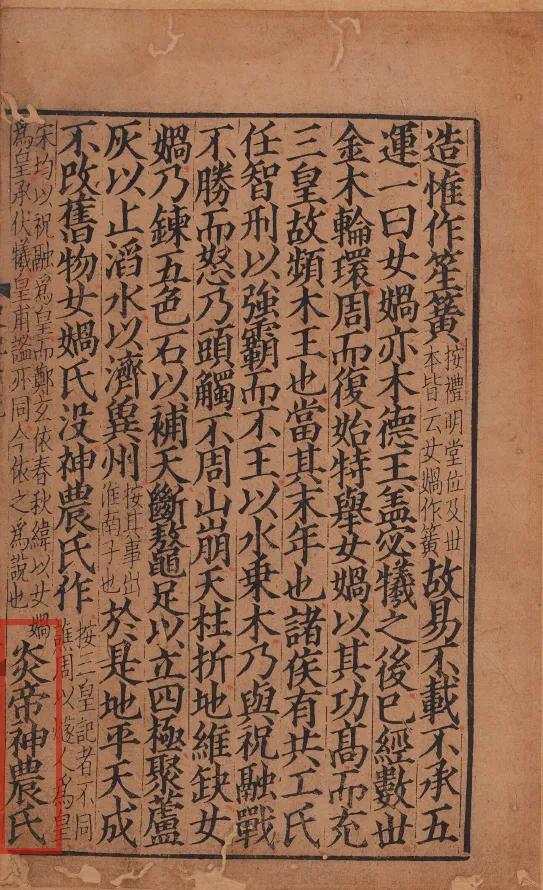 造惟作笙簧按禮明堂位及世本皆云女媧作簧故易不載不承五
運一曰女媧亦木德王盖宓犧之後已經數世
金木輪環周而復始特舉女媧以其功髙而充
三皇故頻木王也當其末年也諸侯有共工氏
任智刑以強霸而不王以水乗木乃與祝融戰
不勝而怒乃頭觸不周山崩天柱折地維缺女
媧乃鍊五色石以補天斷鼇足以立四極聚蘆
灰以止滔水以濟兾州按其事出淮南子也於是地平天成
不改舊物女媧氏没神農氏作按三皇記者不同譙周以燧人為皇
宋均以祝融為皇而鄭玄依春秋緯以女媧為皇承伏犧皇甫謐亦同今依之為說也炎帝神農氏